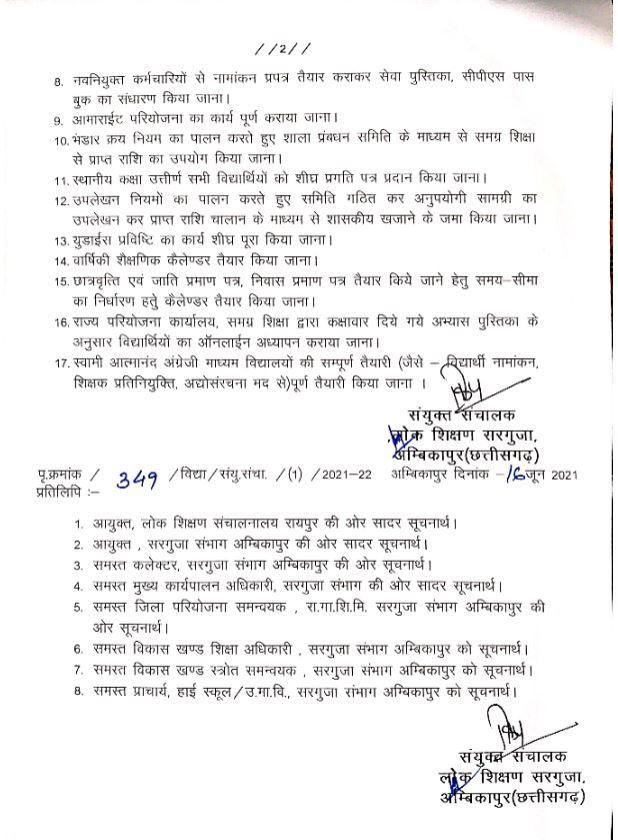 //2//
8. नवनियुक्त कर्मचारियों से नामांकन प्रपत्र तैयार कराकर सेवा पुस्तिका, सीपीएस पास
बुक का संधारण किया जाना।
9. आमाराईट परियोजना का कार्य पूर्ण कराया जाना।
10. भंडार क्रय नियम का पालन करते हुए शाला प्रंबधन समिति के माध्यम से समग्र शिक्षा
से प्राप्त राशि का उपयोग किया जाना।
11. स्थानीय कक्षा उत्तीर्ण सभी विद्यार्थियों को शीघ्र प्रगति पत्र प्रदान किया जाना।
12. उपलेखन नियमों का पालन करते हुए समिति गठित कर अनुपयोगी सामग्री का
उपलेखन कर प्राप्त राशि चालान के माध्यम से शासकीय खजाने के जमा किया जाना।
13. युडाईस प्रविष्टि का कार्य शीघ्र पूरा किया जाना।
14. वार्षिकी शैक्षणिक कैलेण्डर तैयार किया जाना।
15. छात्रवृत्ति एवं जाति प्रमाण पत्र, निवास प्रमाण पत्र तैयार किये जाने हेतु समय–सीमा
का निर्धारण हतुे कैलेण्डर तैयार किया जाना।
16. राज्य परियोजना कार्यालय, समग्र शिक्षा द्वारा कक्षावार दिये गये अभ्यास पुस्तिका के
अनुसार विद्यार्थियों का ऑनलाईन अध्यापन कराया जाना।
17. स्वामी आत्मानंद अंग्रेजी माध्यम विद्यालयों की सम्पूर्ण तैयारी (जैसे – विद्यार्थी नामांकन,
शिक्षक प्रतिनियुक्ति, अद्योसंरचना मद से)पूर्ण तैयारी किया जाना ।
संयुक्त संचालक
लोक शिक्षण सरगुजा,
अम्बिकापुर(छत्तीसगढ़)
पृ.क्रमांक / 349 /विद्या/संयु.संचा. /(1) /2021-22 अम्बिकापुर दिनांक -16 जून 2021
प्रतिलिपि :–
1. आयुक्त, लोक शिक्षण संचालनालय रायपुर की ओर सादर सूचनार्थ।
2. आयुक्त , सरगुजा संभाग अम्बिकापुर की ओर सादर सूचनार्थ।
3. समस्त कलेक्टर, सरगुजा संभाग अम्बिकापुर की ओर सादर सूचनार्थ।
4. समस्त मुख्य कार्यपालन अधिकारी, सरगुजा संभाग की ओर सादर सूचनार्थ।
5. समस्त जिला परियोजना समन्वयक , रा.गा.शि.मि. सरगुजा संभाग अम्बिकापुर की
ओर सूचनार्थ।
6. समस्त विकास खण्ड शिक्षा अधिकारी , सरगुजा संभाग अम्बिकापुर को सूचनार्थ।
7. समस्त विकास खण्ड स्त्रोत समन्वयक , सरगुजा संभाग अम्बिकापुर को सूचनार्थ।
8. समस्त प्राचार्य, हाई स्कूल/उ.मा.वि., सरगुजा संभाग अम्बिकापुर को सूचनार्थ।
संयुक्त संचालक
लोक शिक्षण सरगुजा,
अम्बिकापुर(छत्तीसगढ़)